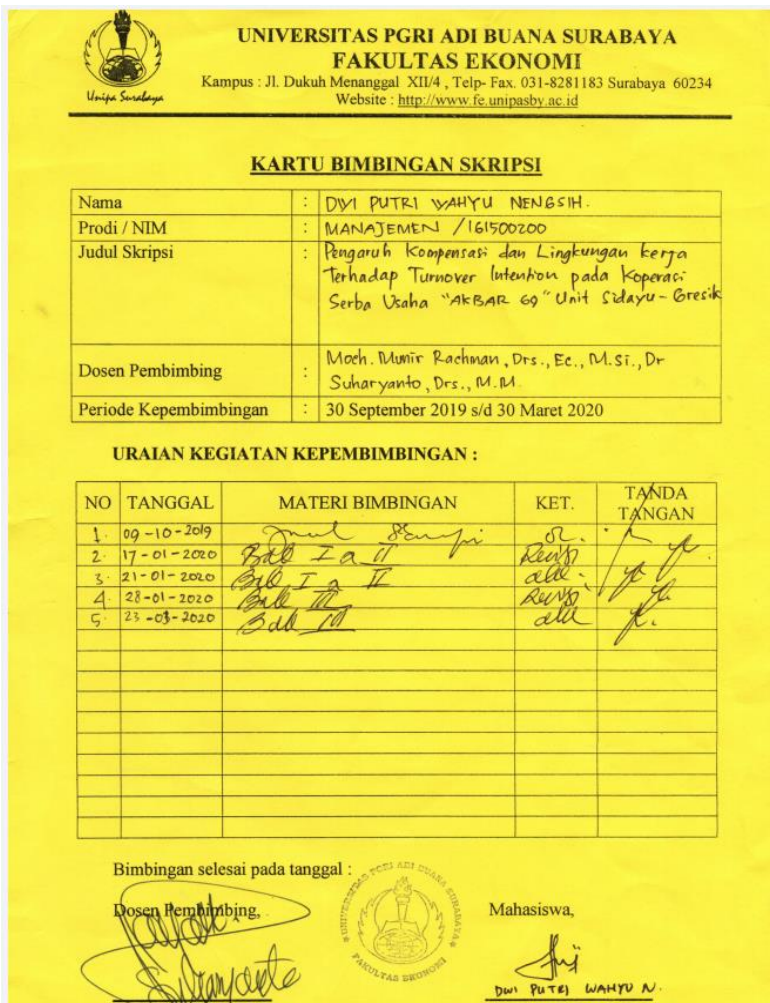 Unipa Surabaya
UNIVERSITAS PGRI ADI BUANA SURABAYA
FAKULTAS EKONOMI
Kampus : Jl. Dukuh Menanggal XII/4 , Telp- Fax. 031-8281183 Surabaya 60234
Website : http://www.fe.unipasby.ac.id
KARTU BIMBINGAN SKRIPSI
Nama : DWI PUTRI WAHYU NENGSIH.
Prodi / NIM : MANAJEMEN / 161500200
Judul Skripsi : Pengaruh Kompensasi dan Lingkungan kerja
Terhadap Turnover Intention pada Koperasi
Serba Usaha "AKBAR 69" Unit Sidayu - Gresik
Dosen Pembimbing : Moch. Munir Rachman, Drs., Ec., M.Si., Dr
Suharyanto, Drs., M.M.
Periode Kepembimbingan : 30 September 2019 s/d 30 Maret 2020
URAIAN KEGIATAN KEPEMBIMBINGAN :
NO TANGGAL MATERI BIMBINGAN KET. TANDA TANGAN
1. 09-10-2019
2. 17-01-2020 Bab I Revisi
3. 21-01-2020 Bab I
4. 28-01-2020 Bab III Revisi
5. 23-03-2020 Bab III
Bimbingan selesai pada tanggal :
Dosen Pembimbing,
Mahasiswa,
UNIVERSITAS PGRI ADI BUANA SURABAYA
FAKULTAS EKONOMI
Suharyanto
DWI PUTRI WAHYU N.